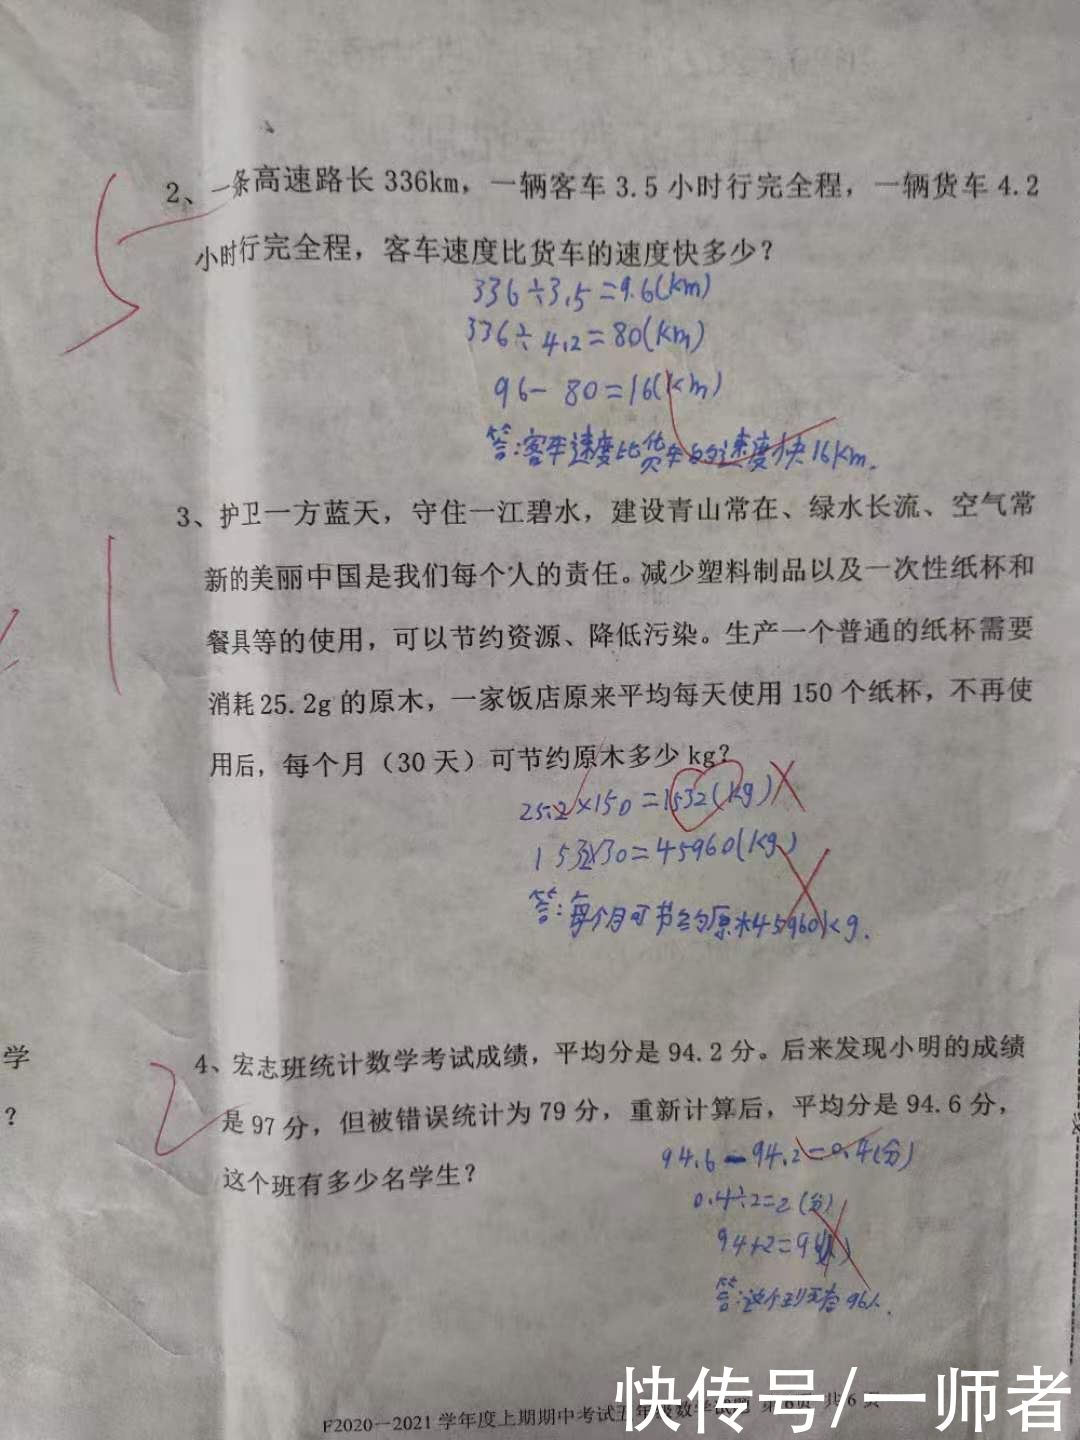 2、一条高速路长 336km，一辆客车 3.5 小时行完全程，一辆货车 4.2
小时行完全程，客车速度比货车的速度快多少？
336÷3.5=9.6(km)
336÷4.2=80(km)
96-80=16(km)
答:客车速度比货车的速度快16km.
3、护卫一方蓝天，守住一江碧水，建设青山常在、绿水长流、空气常
新的美丽中国是我们每个人的责任。减少塑料制品以及一次性纸杯和
餐具等的使用，可以节约资源、降低污染。生产一个普通的纸杯需要
消耗 25.2g 的原木，一家饭店原来平均每天使用 150 个纸杯，不再使
用后，每个月（30 天）可节约原木多少 kg？
25.2×150=1532(kg)
1532×30=45960(kg)
答:每个月可节约原木45960kg.
学
？
4、宏志班统计数学考试成绩，平均分是 94.2 分。后来发现小明的成绩
是 97 分，但被错误统计为 79 分，重新计算后，平均分是 94.6 分，
这个班有多少名学生？
94.6-94.2=0.4(分)
0.4÷2=2(分)
94+2=9
答:这个班有96人.
F2020—2021 学年度上期期中考试五年级数学试题 第6页 共6页
快传号/一师者